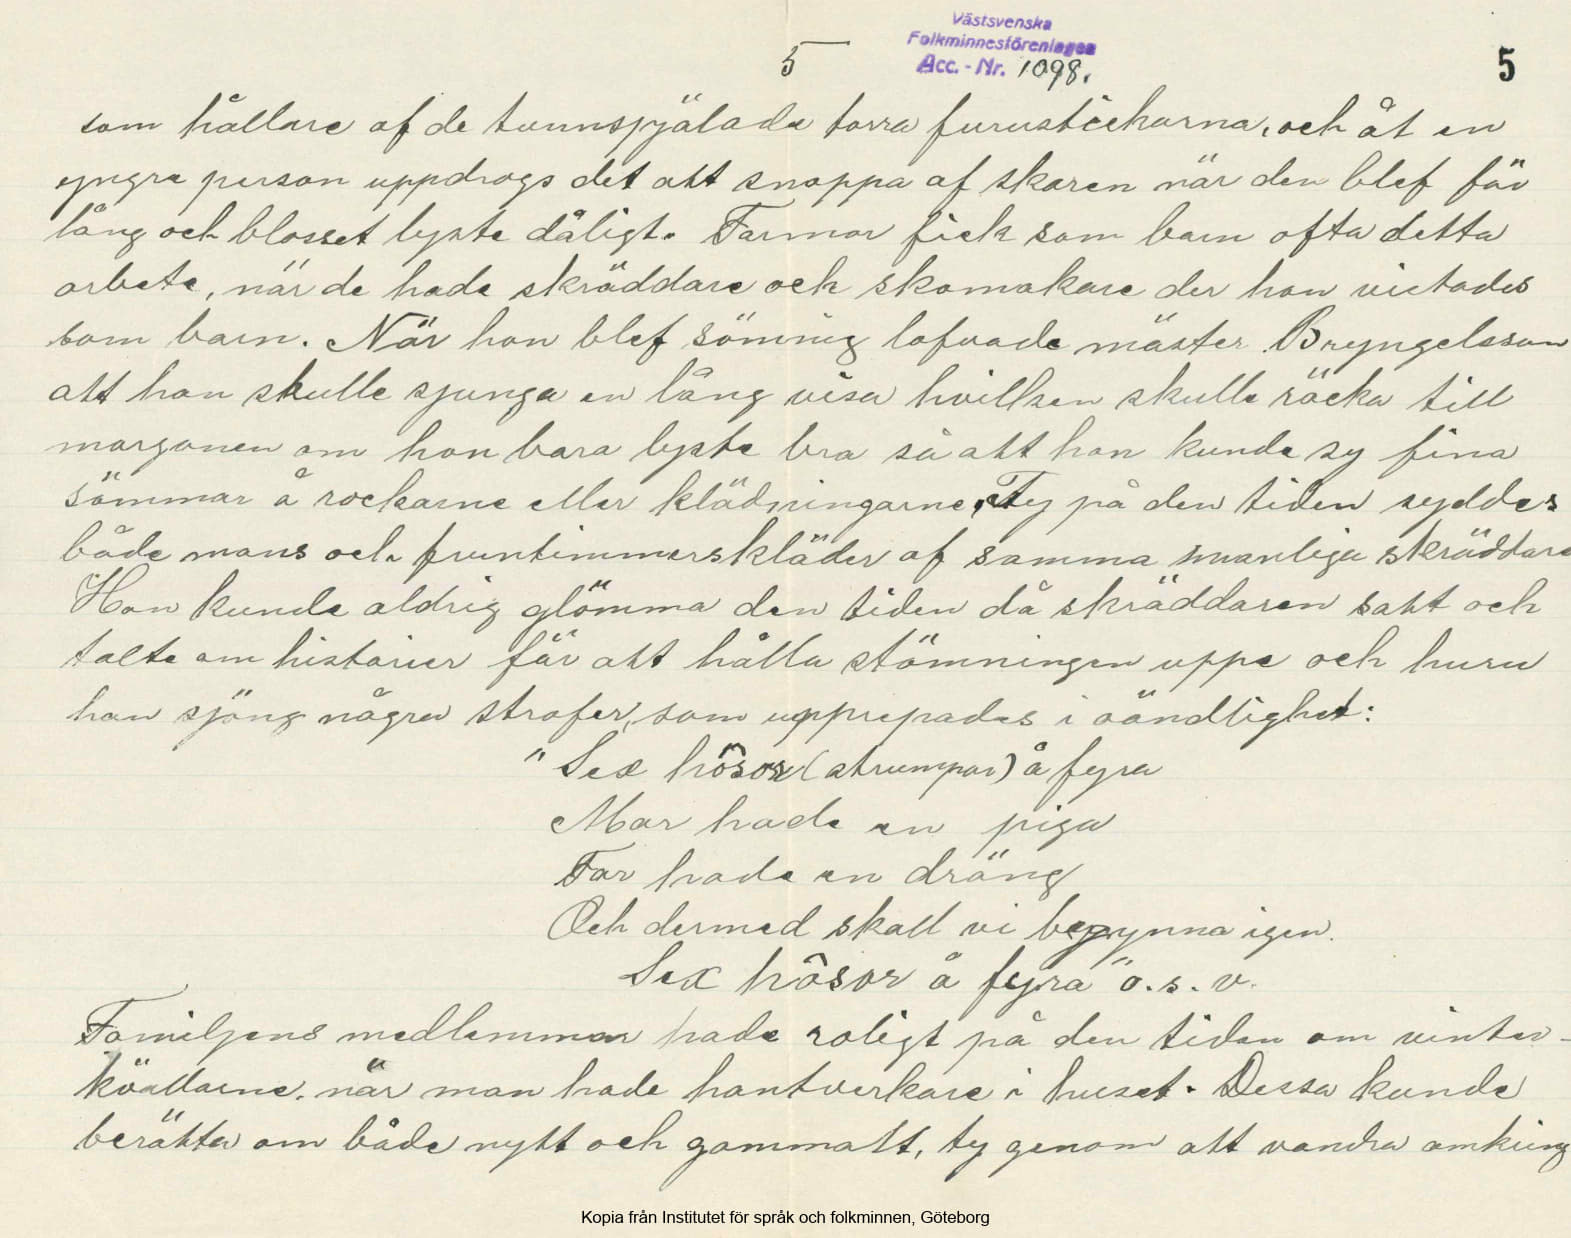 Västsvenska
Folkminnesföreningen
Acc. - Nr. 1098.
5
5
som hållare af de tunnspjälade torra furustickorna, och åt en
yngre person uppdrogs det att snoppa af skaren när den blef för
lång och blosset lyste dåligt. Farmor fick som barn ofta detta
arbete, när de hade skräddare och skomakare der hon vistades
som barn. När hon blef sömnig lofvade mäster Bryngelsson
att han skulle sjunga en lång visa hvillken skulle räcka till
morgonen om hon bara lyste bra så att han kunde sy fina
sömmar å rockarne eller klädningarne, Ty på den tiden syddes
både mans och fruntimmerskläder af samma manliga skräddare
Hon kunde aldrig glömma den tiden då skräddaren satt och
talte om historier för att hålla stämningen uppe och huru
han sjöng några strofer, som upprepades i oändlighet:
" Sex hôsor (strumpor) å fyra
Mor hade en piga
Far hade en dräng
Och dermed skall vi begynna igen.
Sex hôsor å fyra" o. s. v.
Familjens medlemmar hade roligt på den tiden om vinter-
kvällarne, när man hade hantverkare i huset. Dessa kunde
berätta om både nytt och gammalt, ty genom att vandra omkring
Kopia från Institutet för språk och folkminnen, Göteborg